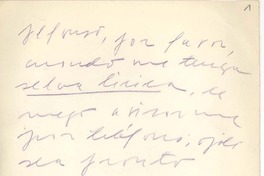 1
Alfonso, por favor,
cuando me tenga
selva lírica, le
ruego avisarme
por teléfono, ojalá
sea pronto